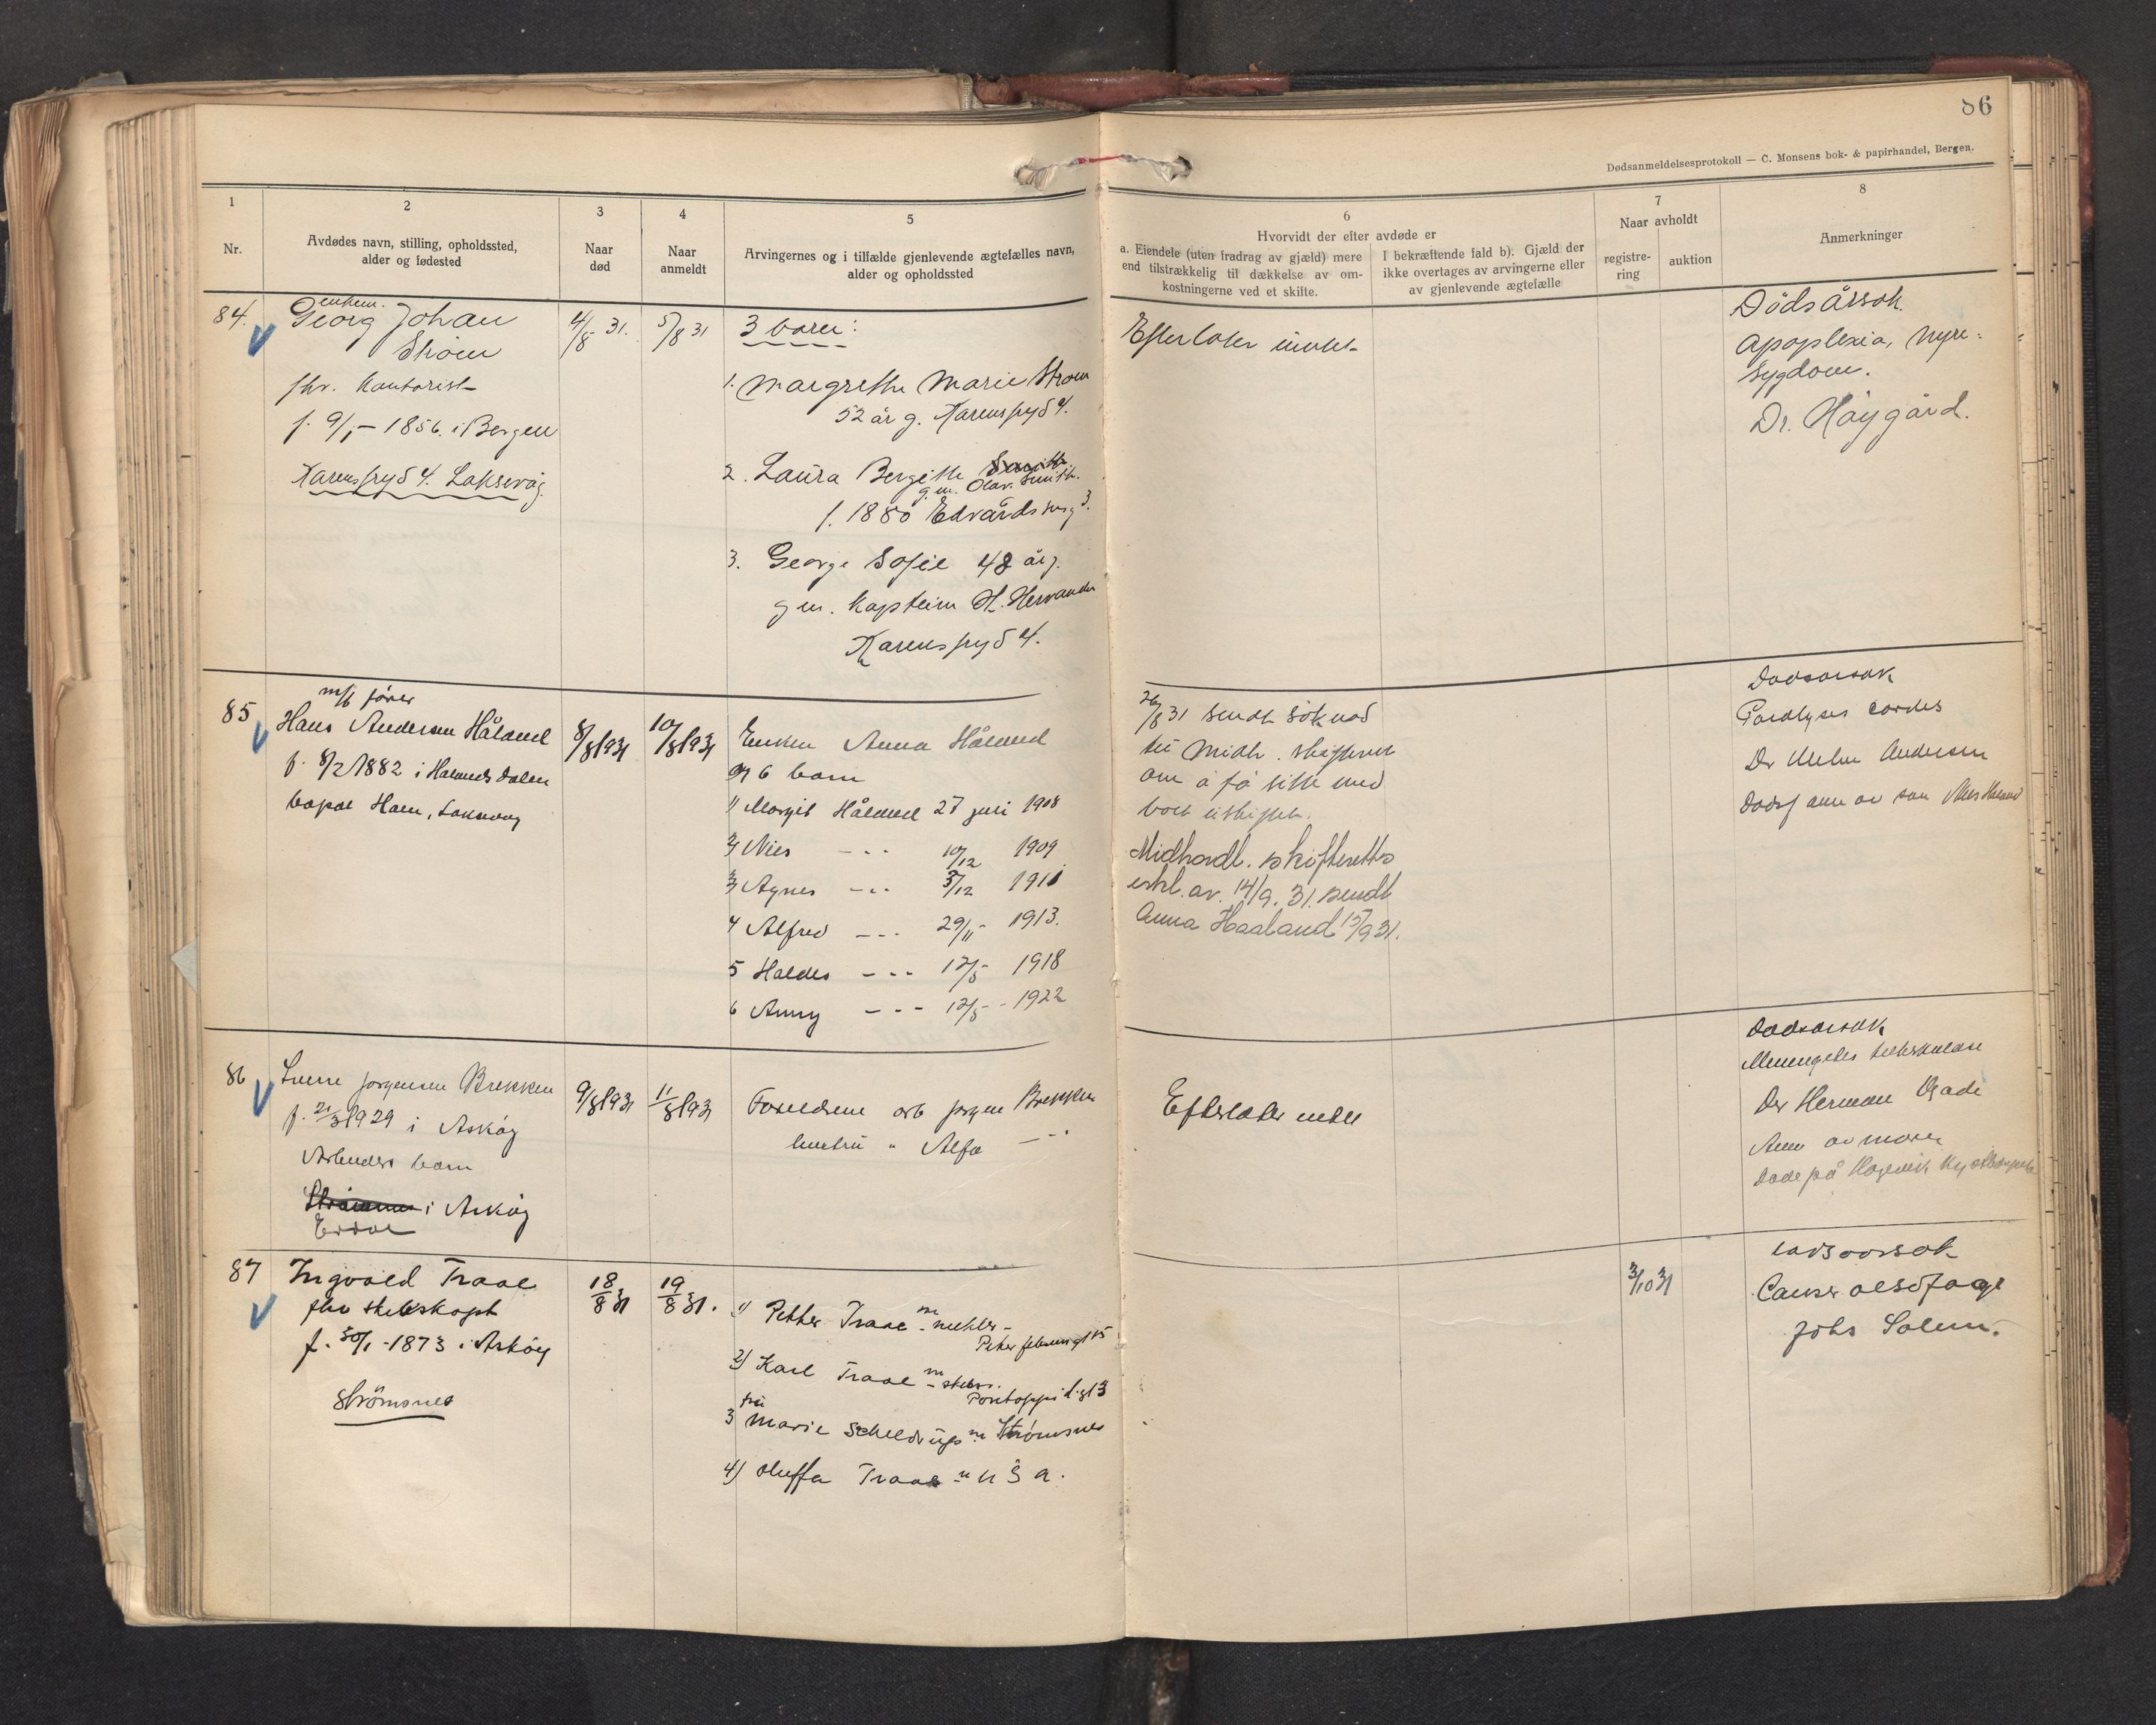 86
Dødsanmeldelsesprotokoll — C. Monsens bok- & papirhandel, Bergen.
1
Nr.
2
Avdødes navn, stilling, opholdssted,
alder og fødested
3
Naar
død
4
Naar
anmeldt
5
Arvingernes og i tilfælde gjenlevende ægtefælles navn,
alder og opholdssted
6
Hvorvidt der efter avdøde er
a. Eiendele (uten fradrag av gjæld) mere
end tilstrækkelig til dækkelse av om-
kostningerne ved et skifte.
I bekræftende fald b). Gjæld der
ikke overtages av arvingerne eller
av gjenlevende ægtefælle
7
Naar avholdt
registre-
ring
auktion
8
Anmerkninger
84.
enkem.
Georg Johan
Strøm
fhv. kontorist
f. 9/1 - 1856. i Bergen
Karensfryd 4. Laksevåg.
4/8 31.
5/8 31
3 barn:
1. Margrethe Marie Strøm
52 år g. Karensfryd 4.
2. Laura Bergithe
gm. Olav Smith.
f. 1880 Edvardsveg 3.
3. George Sofie 48 år g.
gm. kaptein H.
Karensfryd 4.
Efterlater intet
Dödsårsak.
apoplexia, nyre=
sygdom.
Dr. Höygård.
85
m/b fører
Hans Andersen Håland
f. 8/2 1882 i Halandsdalen
bopæl Laksevåg
8/8 1931
10/8 1931
Enken Anna Håland
og 6 barn
1/ Margit Håland 27 juni 1908
2/ Nils - - - 10/12 1909
3/ Agnes - - - 3/12 1911
4 Alfred - - - 29/11 - 1913.
5 Haldis - - - 17/5 - 1918
6 Anny - - - 12/5 - - 1922
26/8 31 sendt söknad
til Midh. skifterett
om å få sitte med
boet uskiftet.
Midhordl. skifteretts
erkl. av. 14/9. 31. sendt
Anna Haaland 15/9 31.
Dødsårsak
Paralyses cordis
Dr Andersen
Dødsf anm av søn Nils Håland
86
Sverre Jørgensen Brekken
f. 21/3 1929 i Askøy
Arbeiders barn
i Askøy
Erdal
9/8 1931
11/8 1931
Foreldrene arb Jørgen Brekken
hustru " Alfa - "
Efterlater intet
Dødsårsak
Meningetis tuberkuløse
Dr Herman Gade
Anm av moren
Døde på Hagevik Kysthospital
87
Ingvald Traae
fhv skibskapt
f. 30/1 - 1873 i Askøy
Strömsnes
18/8 31
19/8 31.
1) Petter Traae m
2) Karl Traae m
3 fru Marie m Strømsnes
4) Traae u S a.
3/10 31
Dødsårsak
Cancer oesofagi
Johs Solem.